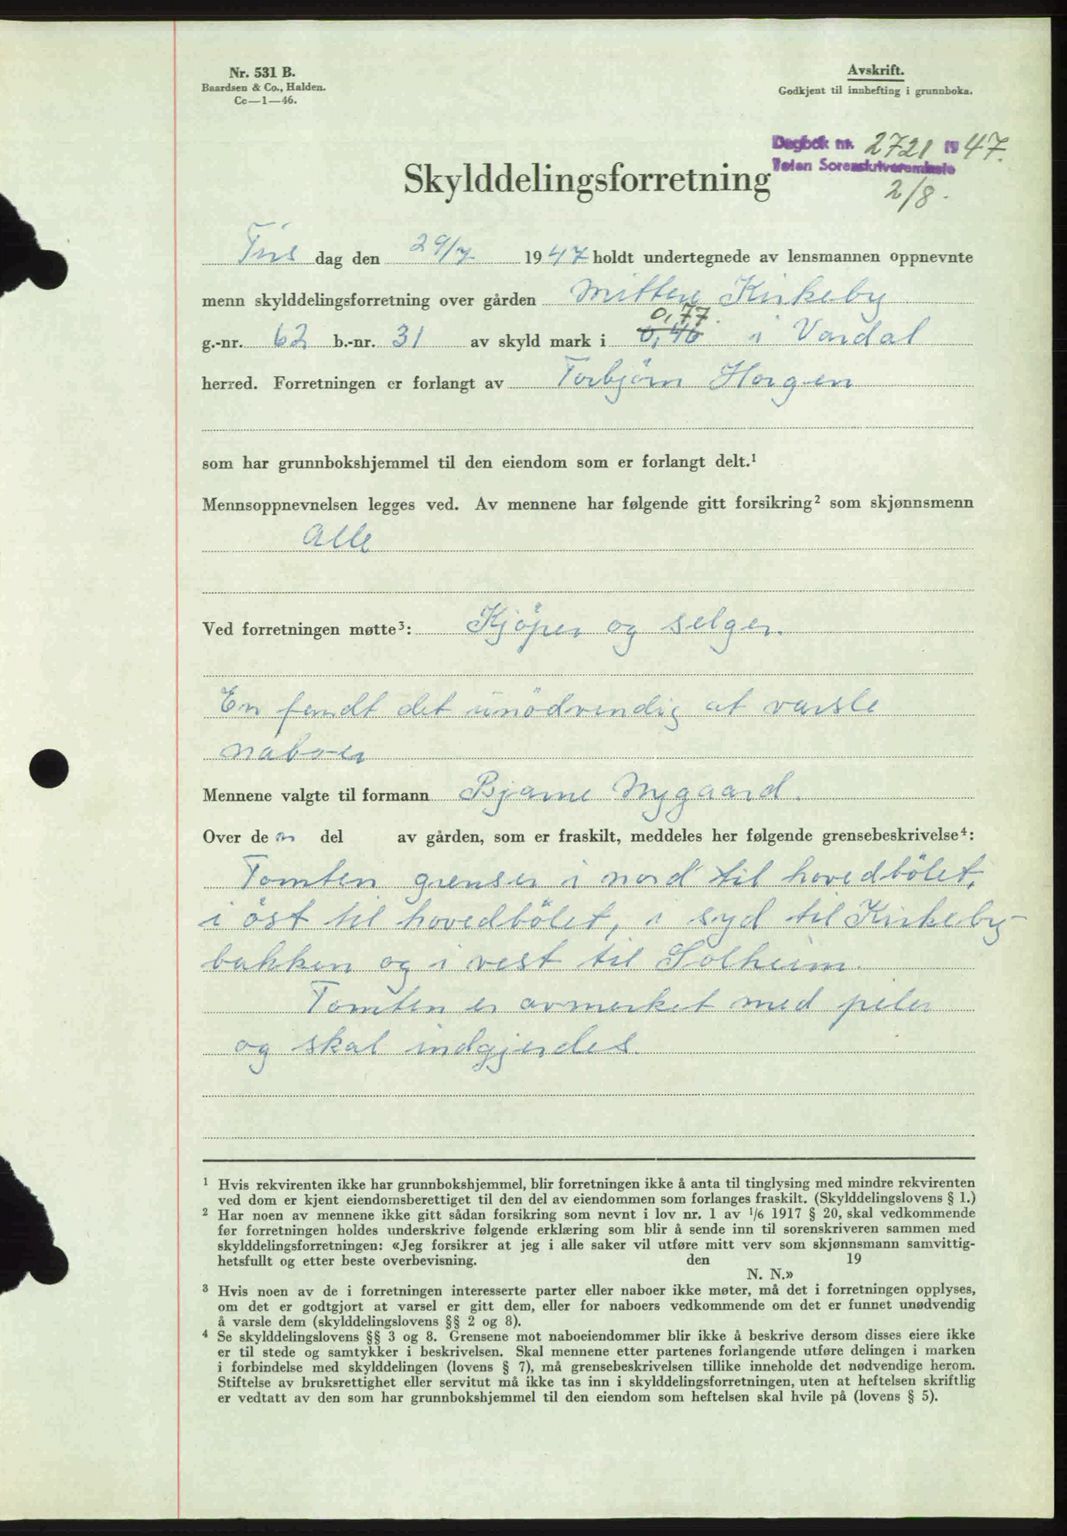 Nr. 531 B.
Baardsen & Co., Halden.
Cc—1—46.
Avskrift.
Godkjent til innhefting i grunnboka.
Dagbok nr. 2721 1947.
Toten Sorenskriverembete
2/8.
Skylddelingsforretning
Tirs dag den 29/7 1947 holdt undertegnede av lensmannen oppnevnte
menn skylddelingsforretning over gården Mittere Kirkeby
0,77.
g.-nr. 62 b.-nr. 31 av skyld mark i 0,46 i Vardal
herred. Forretningen er forlangt av Torbjörn Horgen
som har grunnbokshjemmel til den eiendom som er forlangt delt.¹
Mennsoppnevnelsen legges ved. Av mennene har følgende gitt forsikring² som skjønnsmenn
Alle
Ved forretningen møtte³: Kjöper og selger.
En fandt det unödvendig at varsle
naboer
Mennene valgte til formann Bjarne Nygaard.
Over de n del av gården, som er fraskilt, meddeles her følgende grensebeskrivelse⁴:
Tomten grenser i nord til hovedbölet,
i öst til hovedbölet, i syd til Kirkeby-
bakken og i vest til Solheim.
Tomten er avmerket med peler
og skal indgjerdes.
¹ Hvis rekvirenten ikke har grunnbokshjemmel, blir forretningen ikke å anta til tinglysing med mindre rekvirenten
ved dom er kjent eiendomsberettiget til den del av eiendommen som forlanges fraskilt. (Skylddelingslovens § 1.)
² Har noen av mennene ikke gitt sådan forsikring som nevnt i lov nr. 1 av ¹/6 1917 § 20, skal vedkommende
før forretningen holdes underskrive følgende erklæring som blir å sende inn til sorenskriveren sammen med
skylddelingsforretningen: «Jeg forsikrer at jeg i alle saker vil utføre mitt verv som skjønnsmann samvittig-
hetsfullt og etter beste overbevisning. den 19
N. N.»
³ Hvis noen av de i forretningen interesserte parter eller naboer ikke møter, må det i forretningen opplyses,
om det er godtgjort at varsel er gitt dem, eller for naboers vedkommende om det er funnet unødvendig
å varsle dem (skylddelingslovens §§ 2 og 8).
⁴ Se skylddelingslovens §§ 3 og 8. Grensene mot naboeiendommer blir ikke å beskrive dersom disses eiere ikke
er til stede og samtykker i beskrivelsen. Skal mennene etter partenes forlangende utføre delingen i marken
i forbindelse med skylddelingen (lovens § 7), må grensebeskrivelsen tillike inneholde det nødvendige herom.
Stiftelse av bruksrettighet eller servitut må ikke tas inn i skylddelingsforretningen, uten at heftelsen skriftlig
er vedtatt av den som har grunnbokshjemmel til den eiendom som heftelsen skal hvile på (lovens § 5).